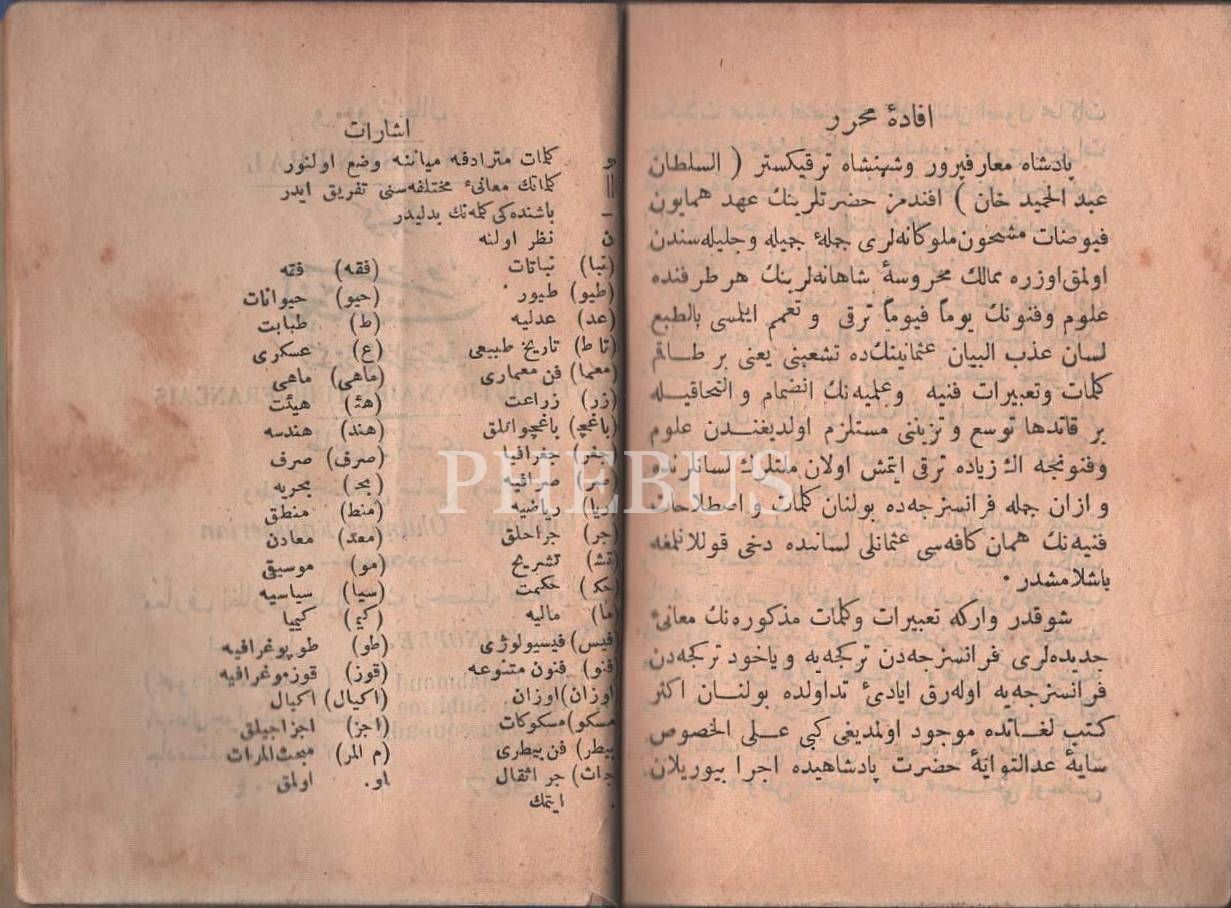 افادۀ محرر
پادشاه معارفپرور وشهنشاه ترقیكستر ( السلطان
عبد الحمید خان ) افندمز حضرتلرینك عهد همایون
فیوضات مشحون ملوكانه‌لری جملۀ جمیله و جلیله‌سندن
اولمق اوزره ممالك محروسۀ شاهانه‌لرینك هر طرفنده
علوم وفنونك یوماً فیوماً ترقی و تعمم ایلمسی بالطبع
لسان عذب البیان عثمانینكده تشعبنی یعنی بر طاقم
كلمات وتعبیرات فنیه وعلمیه‌نك انضمام و التحاقیله
بر قاتدها توسع و تزینی مستلزم اولدیغندن علوم
وفنونجه اك زیاده ترقی ایتمش اولان ملتلرك لسانلرنده
و ازان جمله فرانسزجه‌ده بولنان كلمات و اصطلاحات
فنیه‌نك همان كافه‌سی عثمانلی لساننده دخی قوللانلمغه
باشلامشدر ٠
شوقدر واركه تعبیرات وكلمات مذكوره‌نك معانیٔ
جدیده‌لری فرانسزجه‌دن تركجه‌یه و یاخود تركجه‌دن
فرانسزجه‌یه اوله‌رق ایادیٔ تداولده بولنان اكثر
كتب لغاتده موجود اولمدیغی كبی علی الخصوص
سایۀ عدالتوایۀ حضرت پادشاهیده اجرا بیوریلان
اشارات
و كلمات مترادفه میاننه وضع اولنور
|| كلماتك معانیٔ مختلفه‌سنی تفریق ایدر
- باشنده‌كی كلمه‌نك بدلیدر
ن نظر اولنه
(نبا) نباتات (فقه) فقه
(طیو) طیور (حیو) حیوانات
(عد) عدلیه (ط) طبابت
(تا ط) تاریخ طبیعی (ع) عسكری
(معما) فن معماری (ماهی) ماهی
(زر) زراعت (هئ) هیئت
(باغچه) باغچوانلق (هند) هندسه
(جغر) جغرافیا (صرف) صرف
(صر) صرافیه (بحر) بحریه
(ریا) ریاضیه (منط) منطق
(جر) جراحلق (معد) معادن
(تش) تشریح (مو) موسیقی
(حك) حكمت (سیا) سیاسیه
(ما) مالیه (كیم) كیمیا
(فیس) فیسیولوژی (طو) طوپوغرافیه
(فنو) فنون متنوعه (قوز) قوزموغرافیه
(اوزان) اوزان (اكیال) اكیال
(مسكو) مسكوكات (اجز) اجزاجیلق
(بیطر) فن بیطری (م المر) مبحث المرات
(جاث) جر اثقال او. اولمق
. ایتمك
PHEBUS